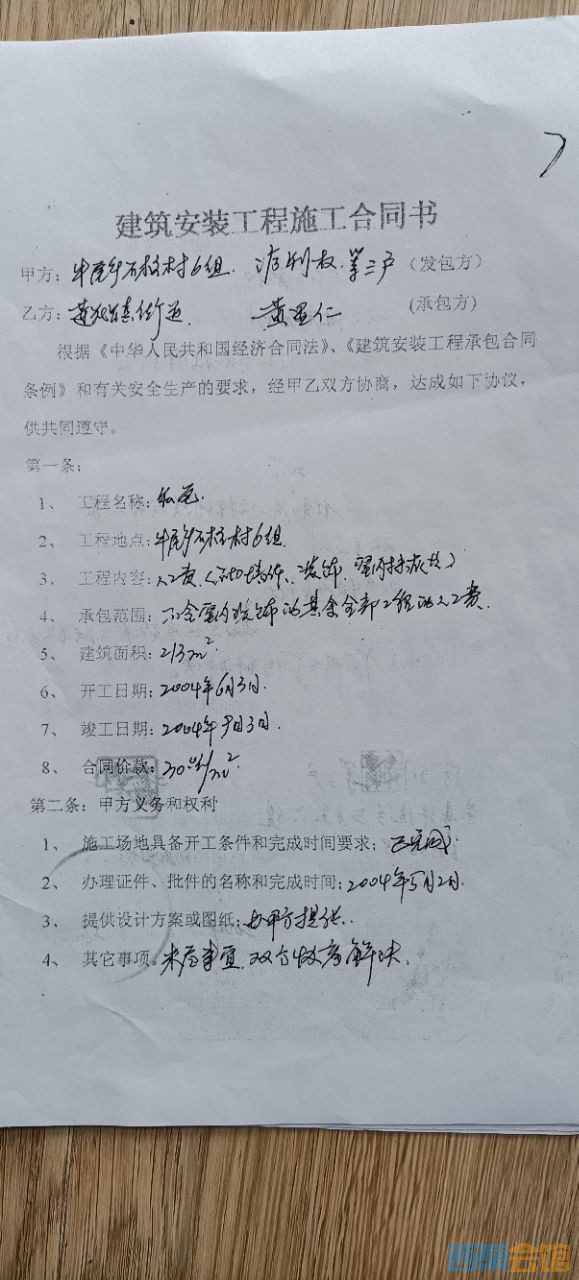 建筑安装工程施工合同书
甲方：牛尾乡石柱村6组 权 第三户（发包方）
乙方：镇街道 黄 仁（承包方）
根据《中华人民共和国经济合同法》、《建筑安装工程承包合同
条例》和有关安全生产的要求，经甲乙双方协商，达成如下协议，
供共同遵守。
第一条：
1、 工程名称：私宅
2、 工程地点：牛尾乡石柱村6组
3、 工程内容：人工费
4、 承包范围：不含室内装饰的其余全部工程的人工费
5、 建筑面积：213m²
6、 开工日期：2004年6月3日
7、 竣工日期：2004年9月3日
8、 合同价款：/m²
第二条：甲方义务和权利
1、 施工场地具备开工条件和完成时间要求：已完成
2、 办理证件、批件的名称和完成时间：2004年5月2日
3、 提供设计方案或图纸：由甲方提供
4、 其它事项。未尽事宜，双方协商解决.
西泵会馆